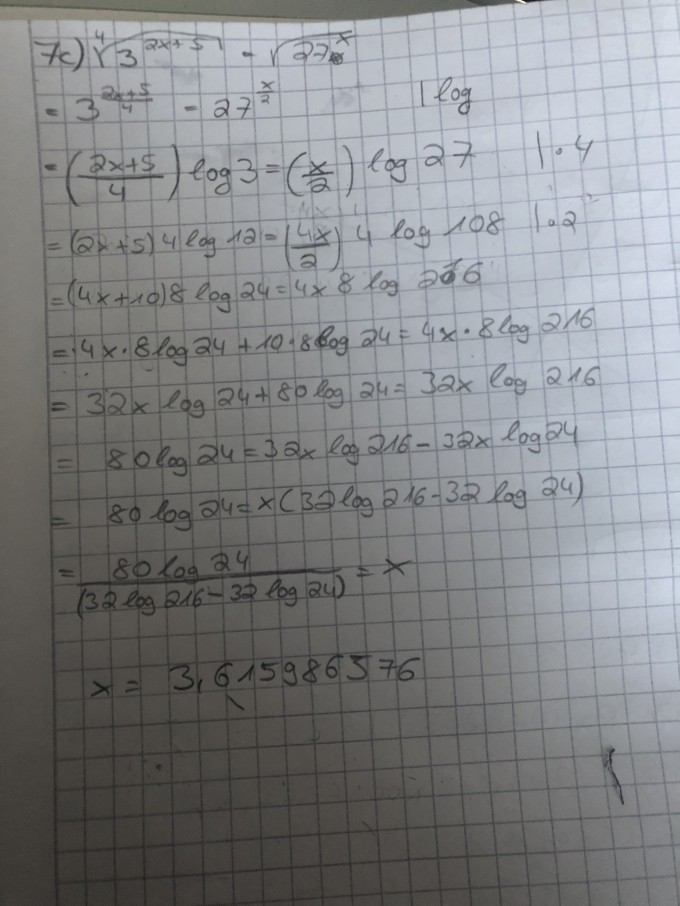 7c) ⁴√(3^(2x+5)) = √(27^x)
= 3^((2x+5)/4) = 27^(x/2) | log
= ((2x+5)/4) log 3 = (x/2) log 27 | · 4
= (2x+5) 4 log 12 = (4x/2) 4 log 108 | · 2
= (4x+10) 8 log 24 = 4x 8 log 216
= 4x · 8 log 24 + 10 · 8 log 24 = 4x · 8 log 216
= 32x log 24 + 80 log 24 = 32x log 216
= 80 log 24 = 32x log 216 - 32x log 24
= 80 log 24 = x (32 log 216 - 32 log 24)
= 80 log 24 / (32 log 216 - 32 log 24) = x
x = 3,615986576